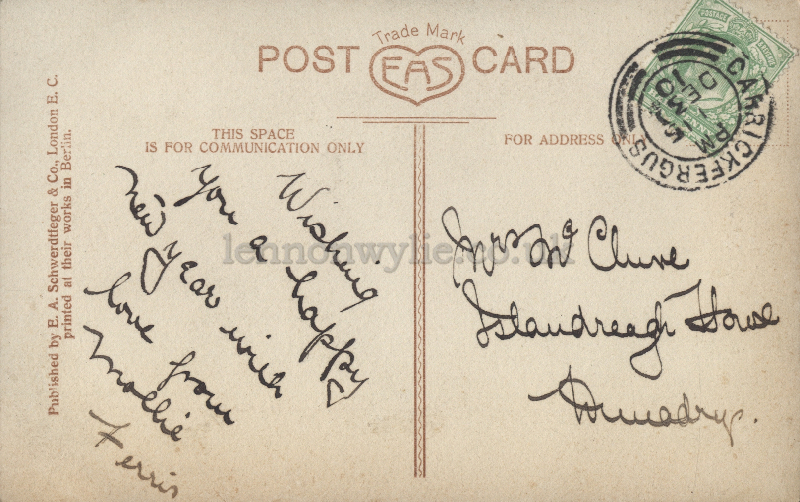 Trade Mark
POST CARD
EAS
THIS SPACE
IS FOR COMMUNICATION ONLY
FOR ADDRESS ONLY
Published by E. A. Schwerdtfeger & Co., London E. C.
printed at their works in Berlin.
Wishing
you a happy
new year with
love from
Mollie
Ferris
Mrs Mc Clure
Islandreagh House
Dunadry.
CARRICKFERGUS
PM
DE
10
POSTAGE
lennonwylie.co.uk